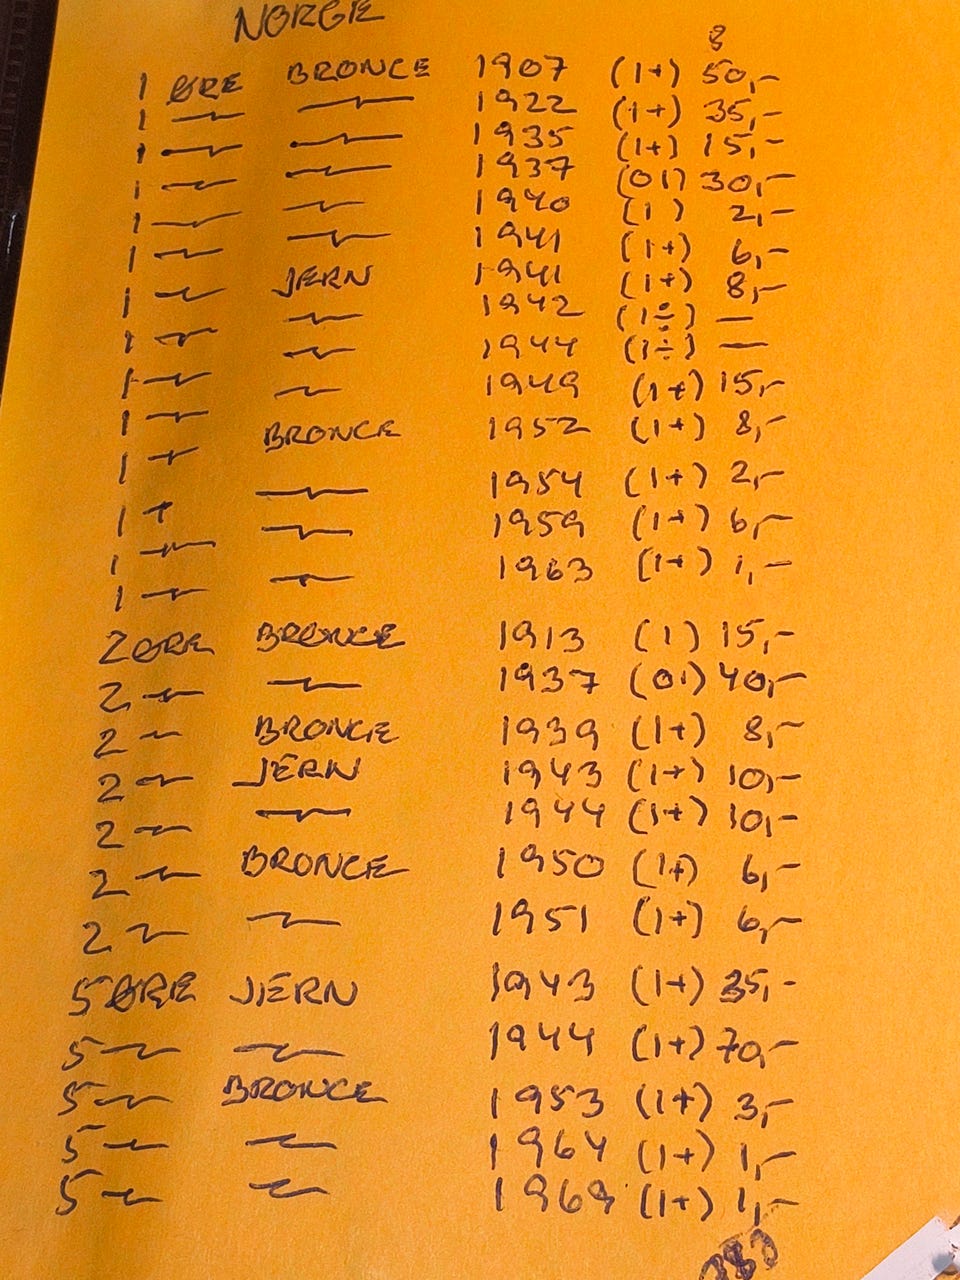 NORGE
8
1 ØRE BRONCE 1907 (1+) 50,-
1 -"- -"- 1922 (1+) 35,-
1 -"- -"- 1935 (1+) 15,-
1 -"- -"- 1937 (01) 30,-
1 -"- -"- 1940 (1) 2,-
1 -"- -"- 1941 (1+) 6,-
1 -"- JERN 1941 (1+) 8,-
1 -"- -"- 1942 (1÷) —
1 -"- -"- 1944 (1÷) —
1 -"- -"- 1949 (1+) 15,-
1 -"- BRONCE 1952 (1+) 8,-
1 -"- -"- 1954 (1+) 2,-
1 -"- -"- 1959 (1+) 6,-
1 -"- -"- 1963 (1+) 1,-
2 ØRE BRONCE 1913 (1) 15,-
2 -"- -"- 1937 (01) 40,-
2 -"- BRONCE 1939 (1+) 8,-
2 -"- JERN 1943 (1+) 10,-
2 -"- -"- 1944 (1+) 10,-
2 -"- BRONCE 1950 (1+) 6,-
2 -"- -"- 1951 (1+) 6,-
5 ØRE JERN 1943 (1+) 35,-
5 -"- -"- 1944 (1+) 70,-
5 -"- BRONCE 1953 (1+) 3,-
5 -"- -"- 1964 (1+) 1,-
5 -"- -"- 1969 (1+) 1,-